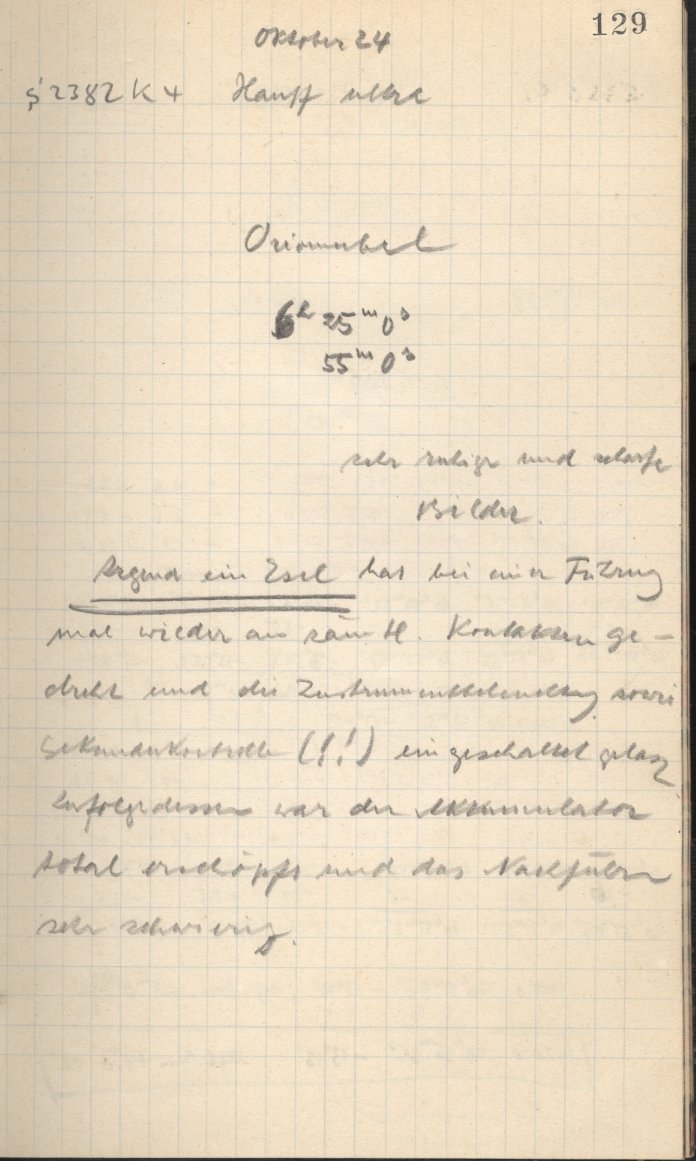 129
Oktober 24
S 2382 K 4 Hauff ultra
Orionnebel
6h 25m 0s
55m 0s
sehr ruhige und scharfe
Bilder.
Irgend ein Esel hat bei einer Führung
mal wieder an sämtl. Kontakten ge-
dreht und die Instrumentbeleuchtung sowie
Sekundenkontrolle (!!) eingeschaltet gelass
Infolgedessen war der Akkumulator
total erschöpft und das Nachführen
sehr schwierig.